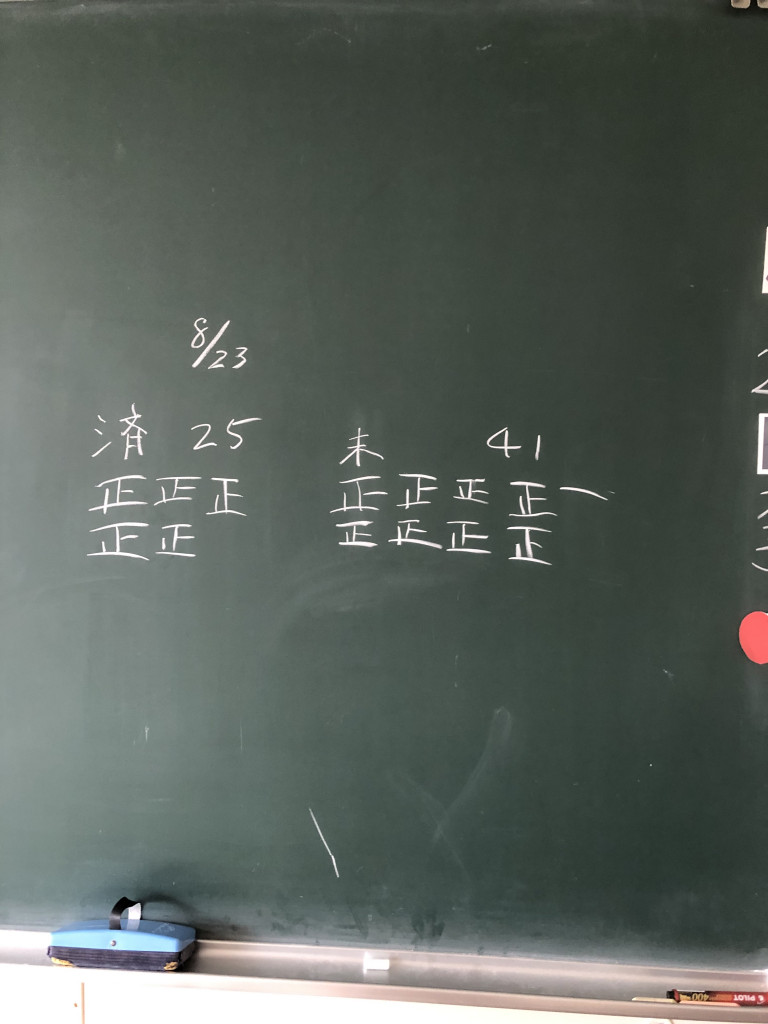 8/23
済 25
正正正
正正
未 41
正正正正一
正正正正
PILOT
400